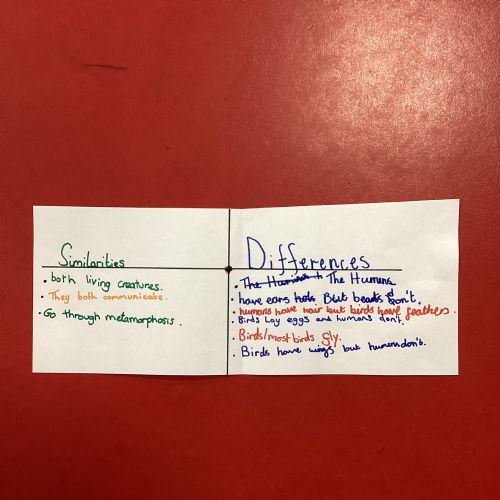 Similarities
both living creatures.
They both communicate.
Go through metamorphosis.
Differences
The Humans
have ears But don't.
humans have hair but birds have feathers.
Birds lay eggs and humans don't.
Birds/most birds fly.
Birds have wings but humans don't.